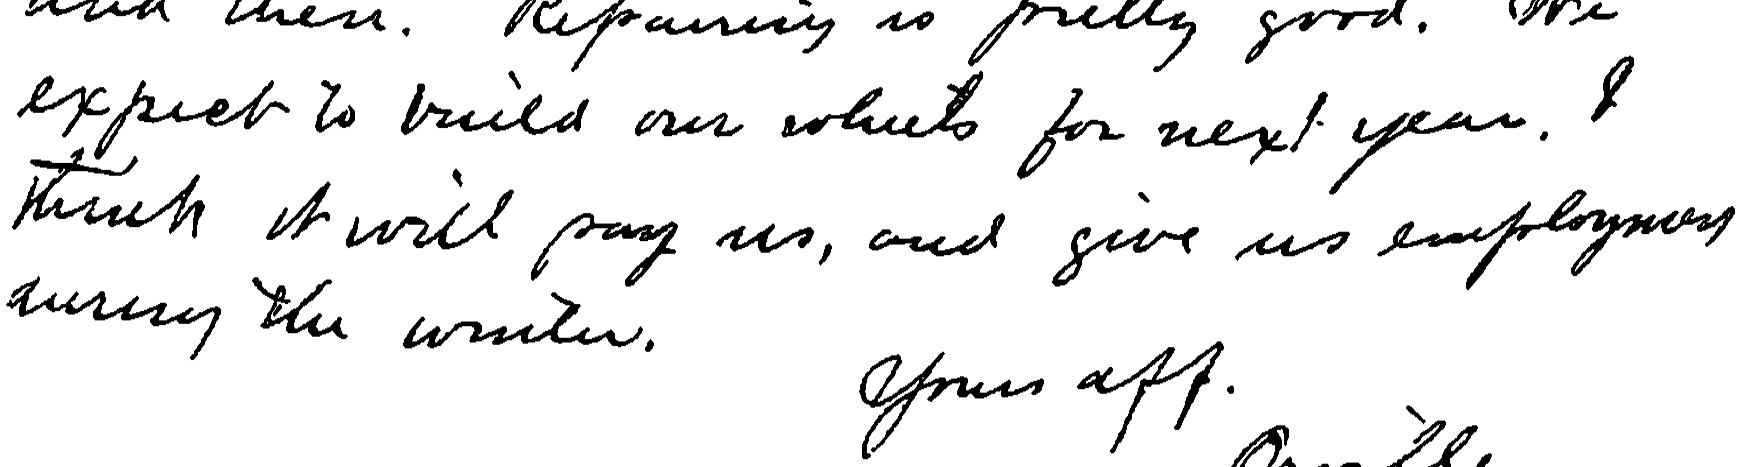 and then. Repairing is pretty good. We
expect to build our wheels for next year. I
think it will pay us, and give us employment
during the winter.
Yours aff.
Orville